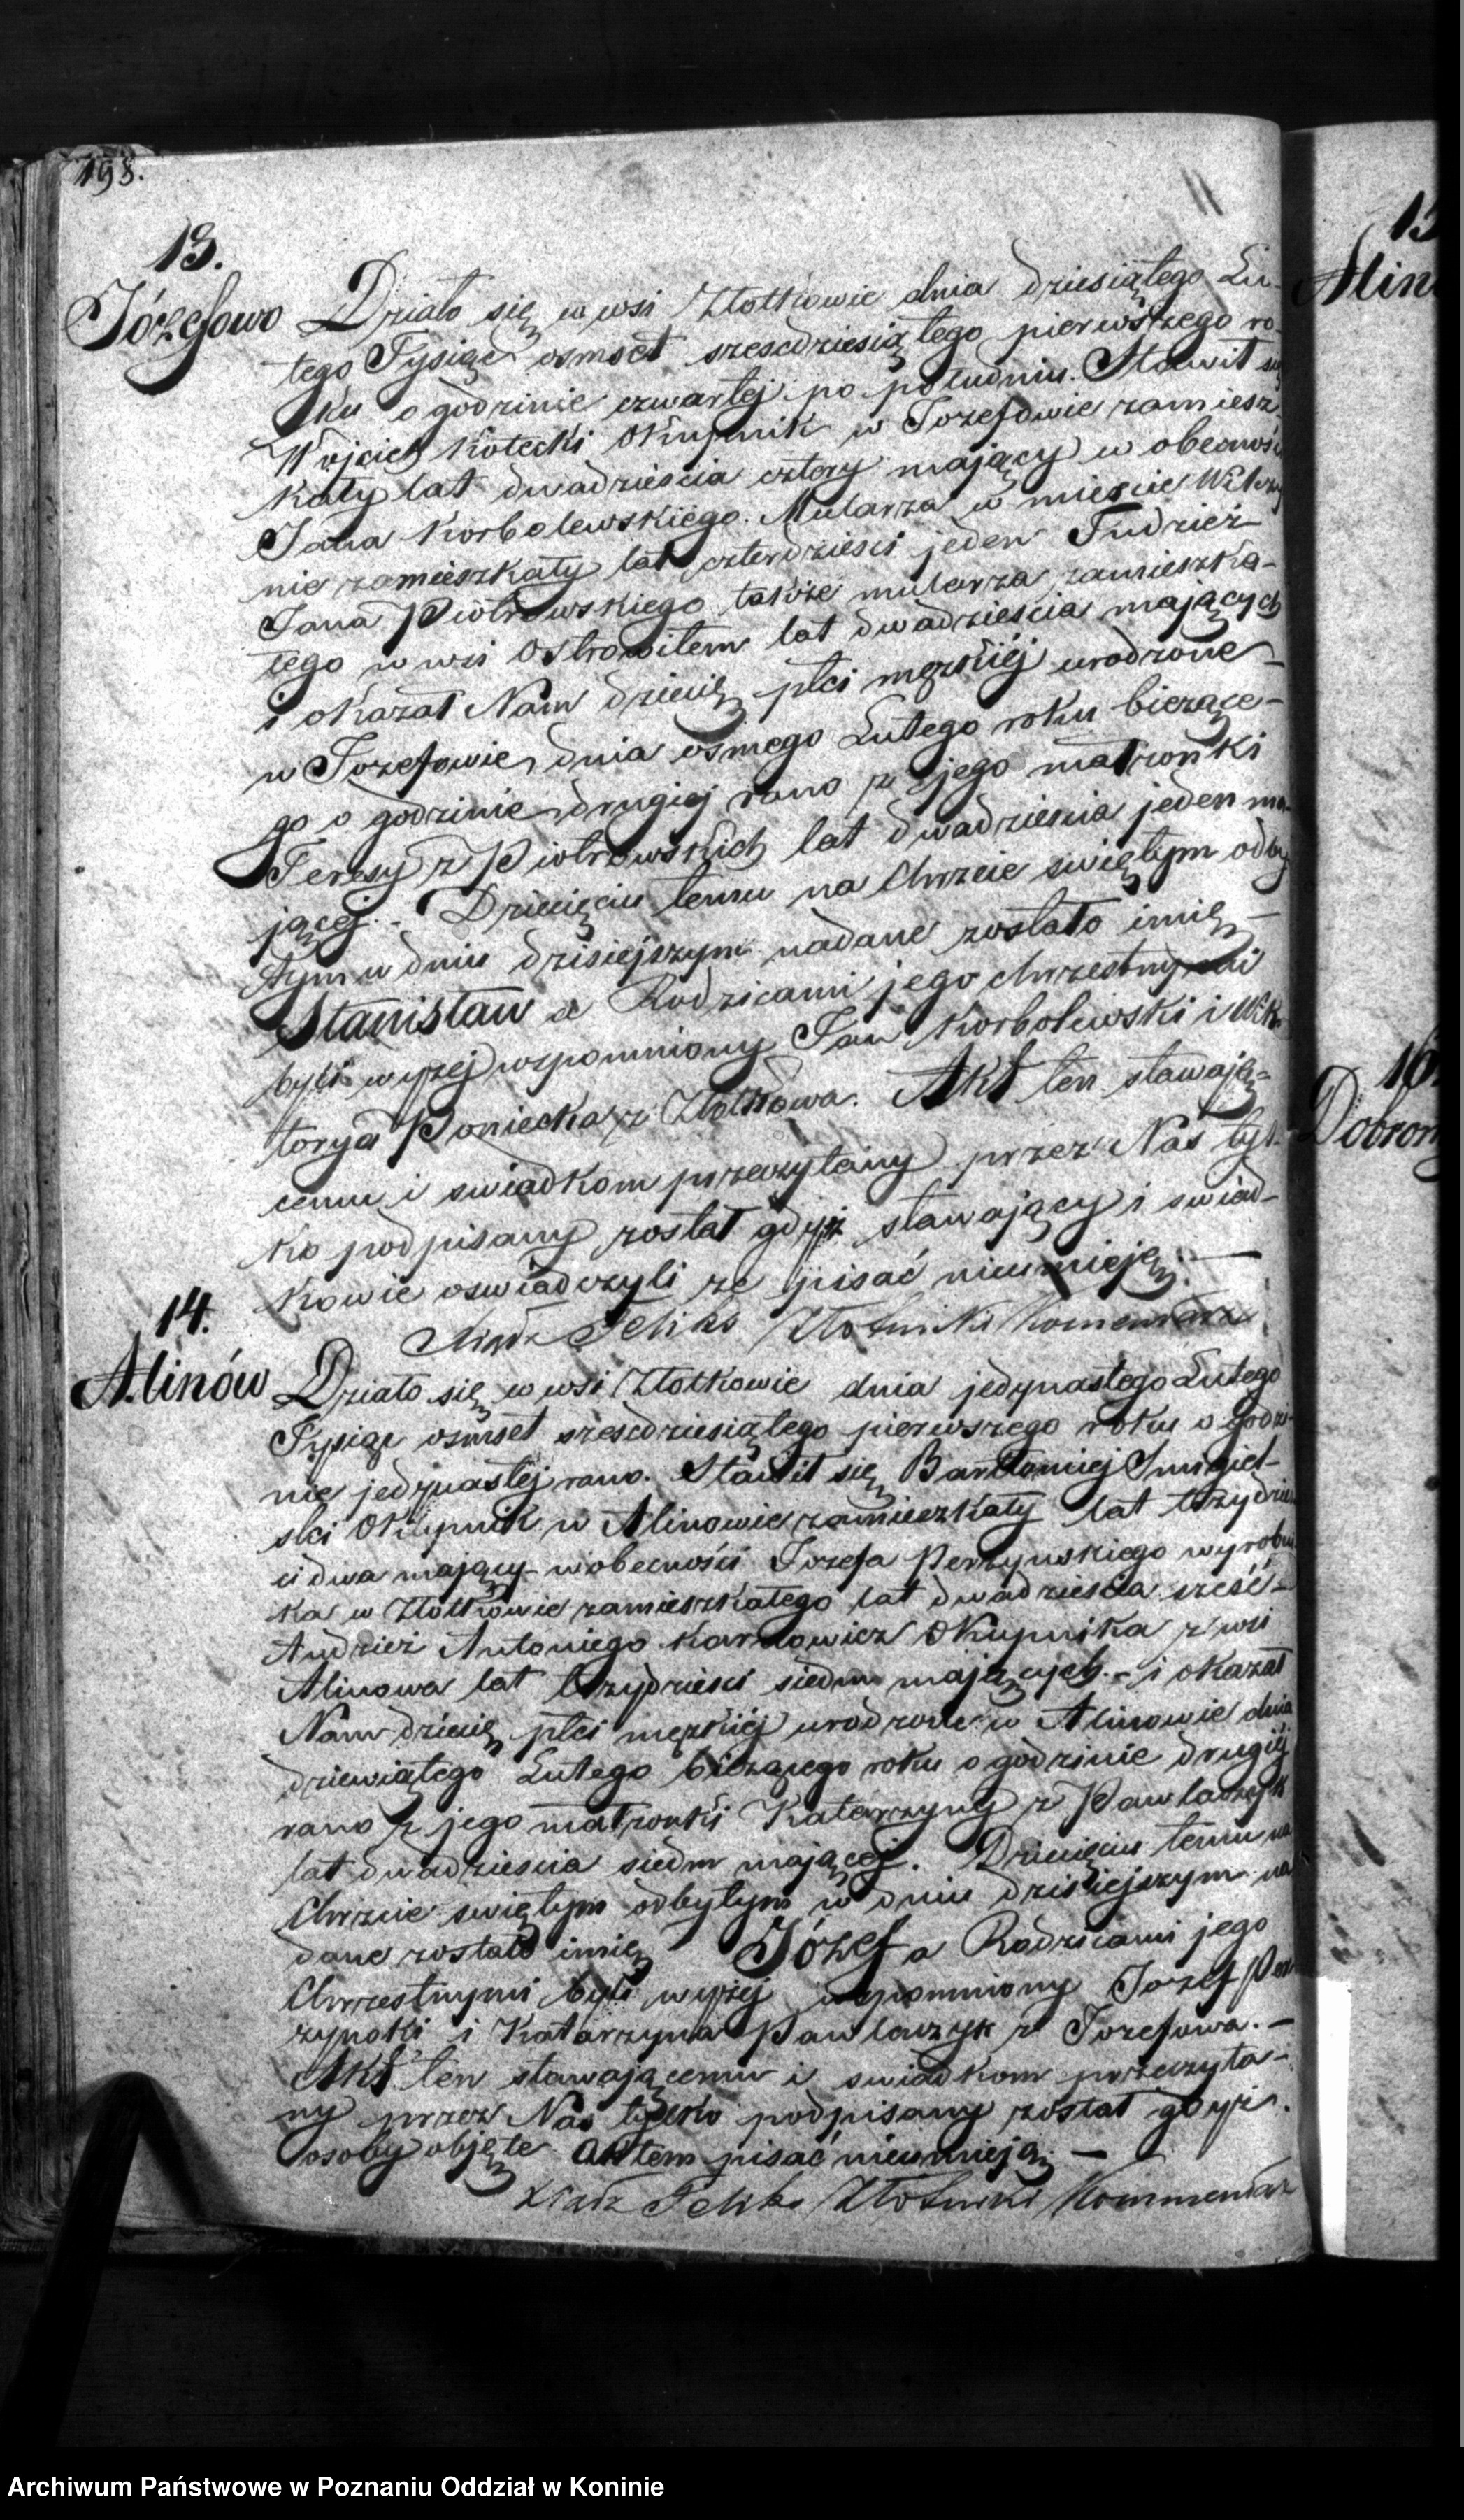 198.
13.
Józefowo
Działo się w wsi Złotkowie dnia dziesiątego Lu-
tego Tysiąc osmset szescdziesiątego pierwszego ro-
ku o godzinie czwartej po południu. Stawił się
Wojciech Kotecki Okupnik w Jozefowie zamiesz-
kały lat dwadzieścia cztery mający w obecności
Jana Korbolewskiego Mularza w mieście Wilczy
nie zamieszkały lat czterdzieści jeden Tudzież
Jana Piotrowskiego także mularza zamieszka-
łego w wsi Ostrowitem lat dwadzieścia mających
i okazał Nam dziecię płci męzkiéj urodzone
w Jozefowie dnia osmego Lutego roku biezące-
go o godzinie drugiej rano z jego małżonki
Teresy z Piotrowskich lat dwadzieścia jeden ma-
jącej. - Dziecięciu temu na Chrzcie świętym odby
tym w dniu dzisiejszym nadane zostało imię -
Stanisław a Rodzicami jego chrzestnymi
byli wyżej wspomniony Jan Korbolewski i Wik-
torya Poniecka z Złotkowa. Akt ten stawają-
cemu i swiadkom przeczytany przez Nas tyl-
ko podpisany został gdyż stawający i swiad-
kowie oswiadczyli ze pisać nieumieją. -
Xiądz Feliks Komendarz
14.
Alinów
Działo się w wsi Złotkowie dnia jedynastego Lutego
Tysiąc osmset szescdziesiątego pierwszego roku o godzi-
nie jedynastej rano. Stawił się Bartłomiej Smigiel-
ski Okupnik w Alinowie zamieszkały lat trzydzieś
ci dwa mający w obecności Jozefa Perzynskiego wyrobni
ka w Złotkowie zamieszkałego lat dwadzieścia sześć -
Tudzież Antoniego Okupnika z wsi
Alinowa lat trzydzieści siedm mających. - i okazał
Nam dziecię płci męzkiéj urodzone w Alinowie dnia
dziewiątego Lutego bieżącego roku o godzinie drugiéj
rano z jego małżonki Katarzyny z Pawlaczyk
lat dwadzieścia siedm mającej. Dziecięciu temu na
Chrzcie świętym odbytym w dniu dzisiejszym na
dane zostało imię Józef a Rodzicami jego
Chrzestnymi byli wyżej wspomniony Jozef Per
zynski i Katarzyna Pawlaczyk z Jozefowa. -
Akt ten stawającemu i swiadkom przeczyta-
ny przez Nas tylko podpisany został gdyż.
osoby objęte aktem pisać nieumieją. -
Xiądz Feliks Kommendarz
Alin
16.
Dobrom
Archiwum Państwowe w Poznaniu Oddział w Koninie